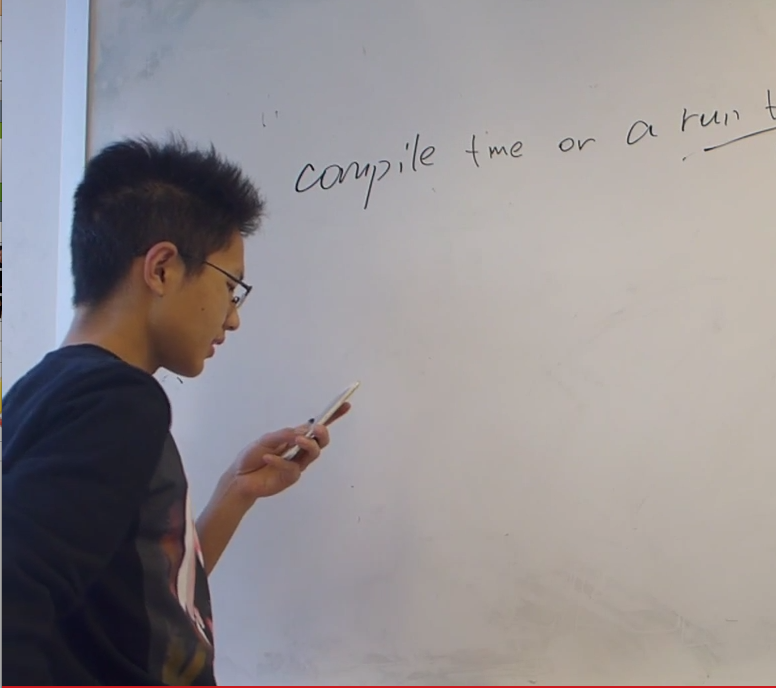 compile time or a run t